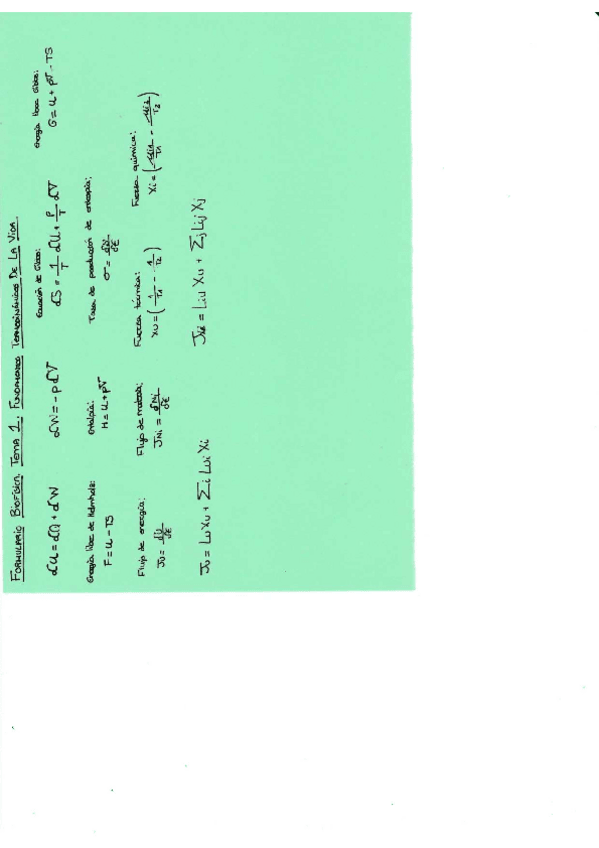 FORMULARIO BIOFÍSICA TEMA 1. FUNDAMENTOS TERMODINÁMICOS DE LA VIDA
dU = dQ + dW
dW = -p dV
Ecuación de Gibbs:
dS = 1/T dU + P/T dV
Energía libre Gibbs:
G = U + pV - TS
Energía libre de Helmholz:
F = U - TS
entalpía:
H = U + pV
Tasa de producción de entropía:
σ = dS/dt
Flujo de energía:
Ju = dU/dt
Flujo de materia:
JNi = dNi/dt
Fuerza térmica:
Xu = (1/T1 - 1/T2)
Fuerza química:
Xi = (μi1/T1 - μi2/T2)
Ju = Lu Xu + Σi Lui Xi
= Liu Xu + Σj Lij Xj